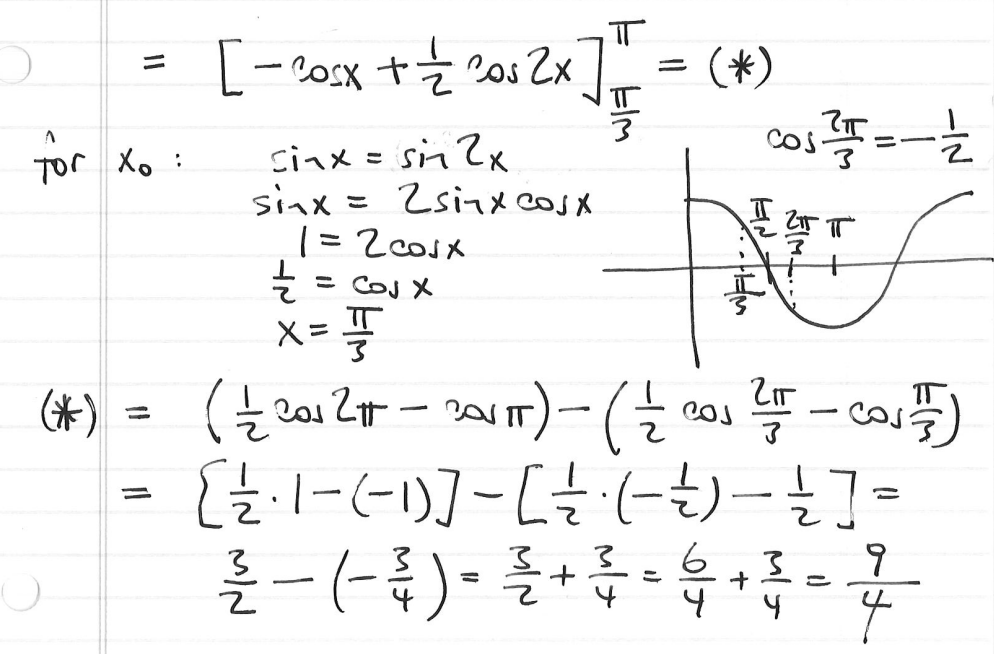 = [-cosx + 1/2 cos2x]_{π/3}^{π} = (*)
for x₀ : sinx = sin2x
sinx = 2sinxcosx
1 = 2cosx
1/2 = cosx
x = π/3
cos 2π/3 = -1/2
π/2 2π/3 π
π/3
(*) = (1/2 cos2π - cosπ) - (1/2 cos 2π/3 - cos π/3)
= [1/2 · 1 - (-1)] - [1/2 · (-1/2) - 1/2] =
3/2 - (-3/4) = 3/2 + 3/4 = 6/4 + 3/4 = 9/4